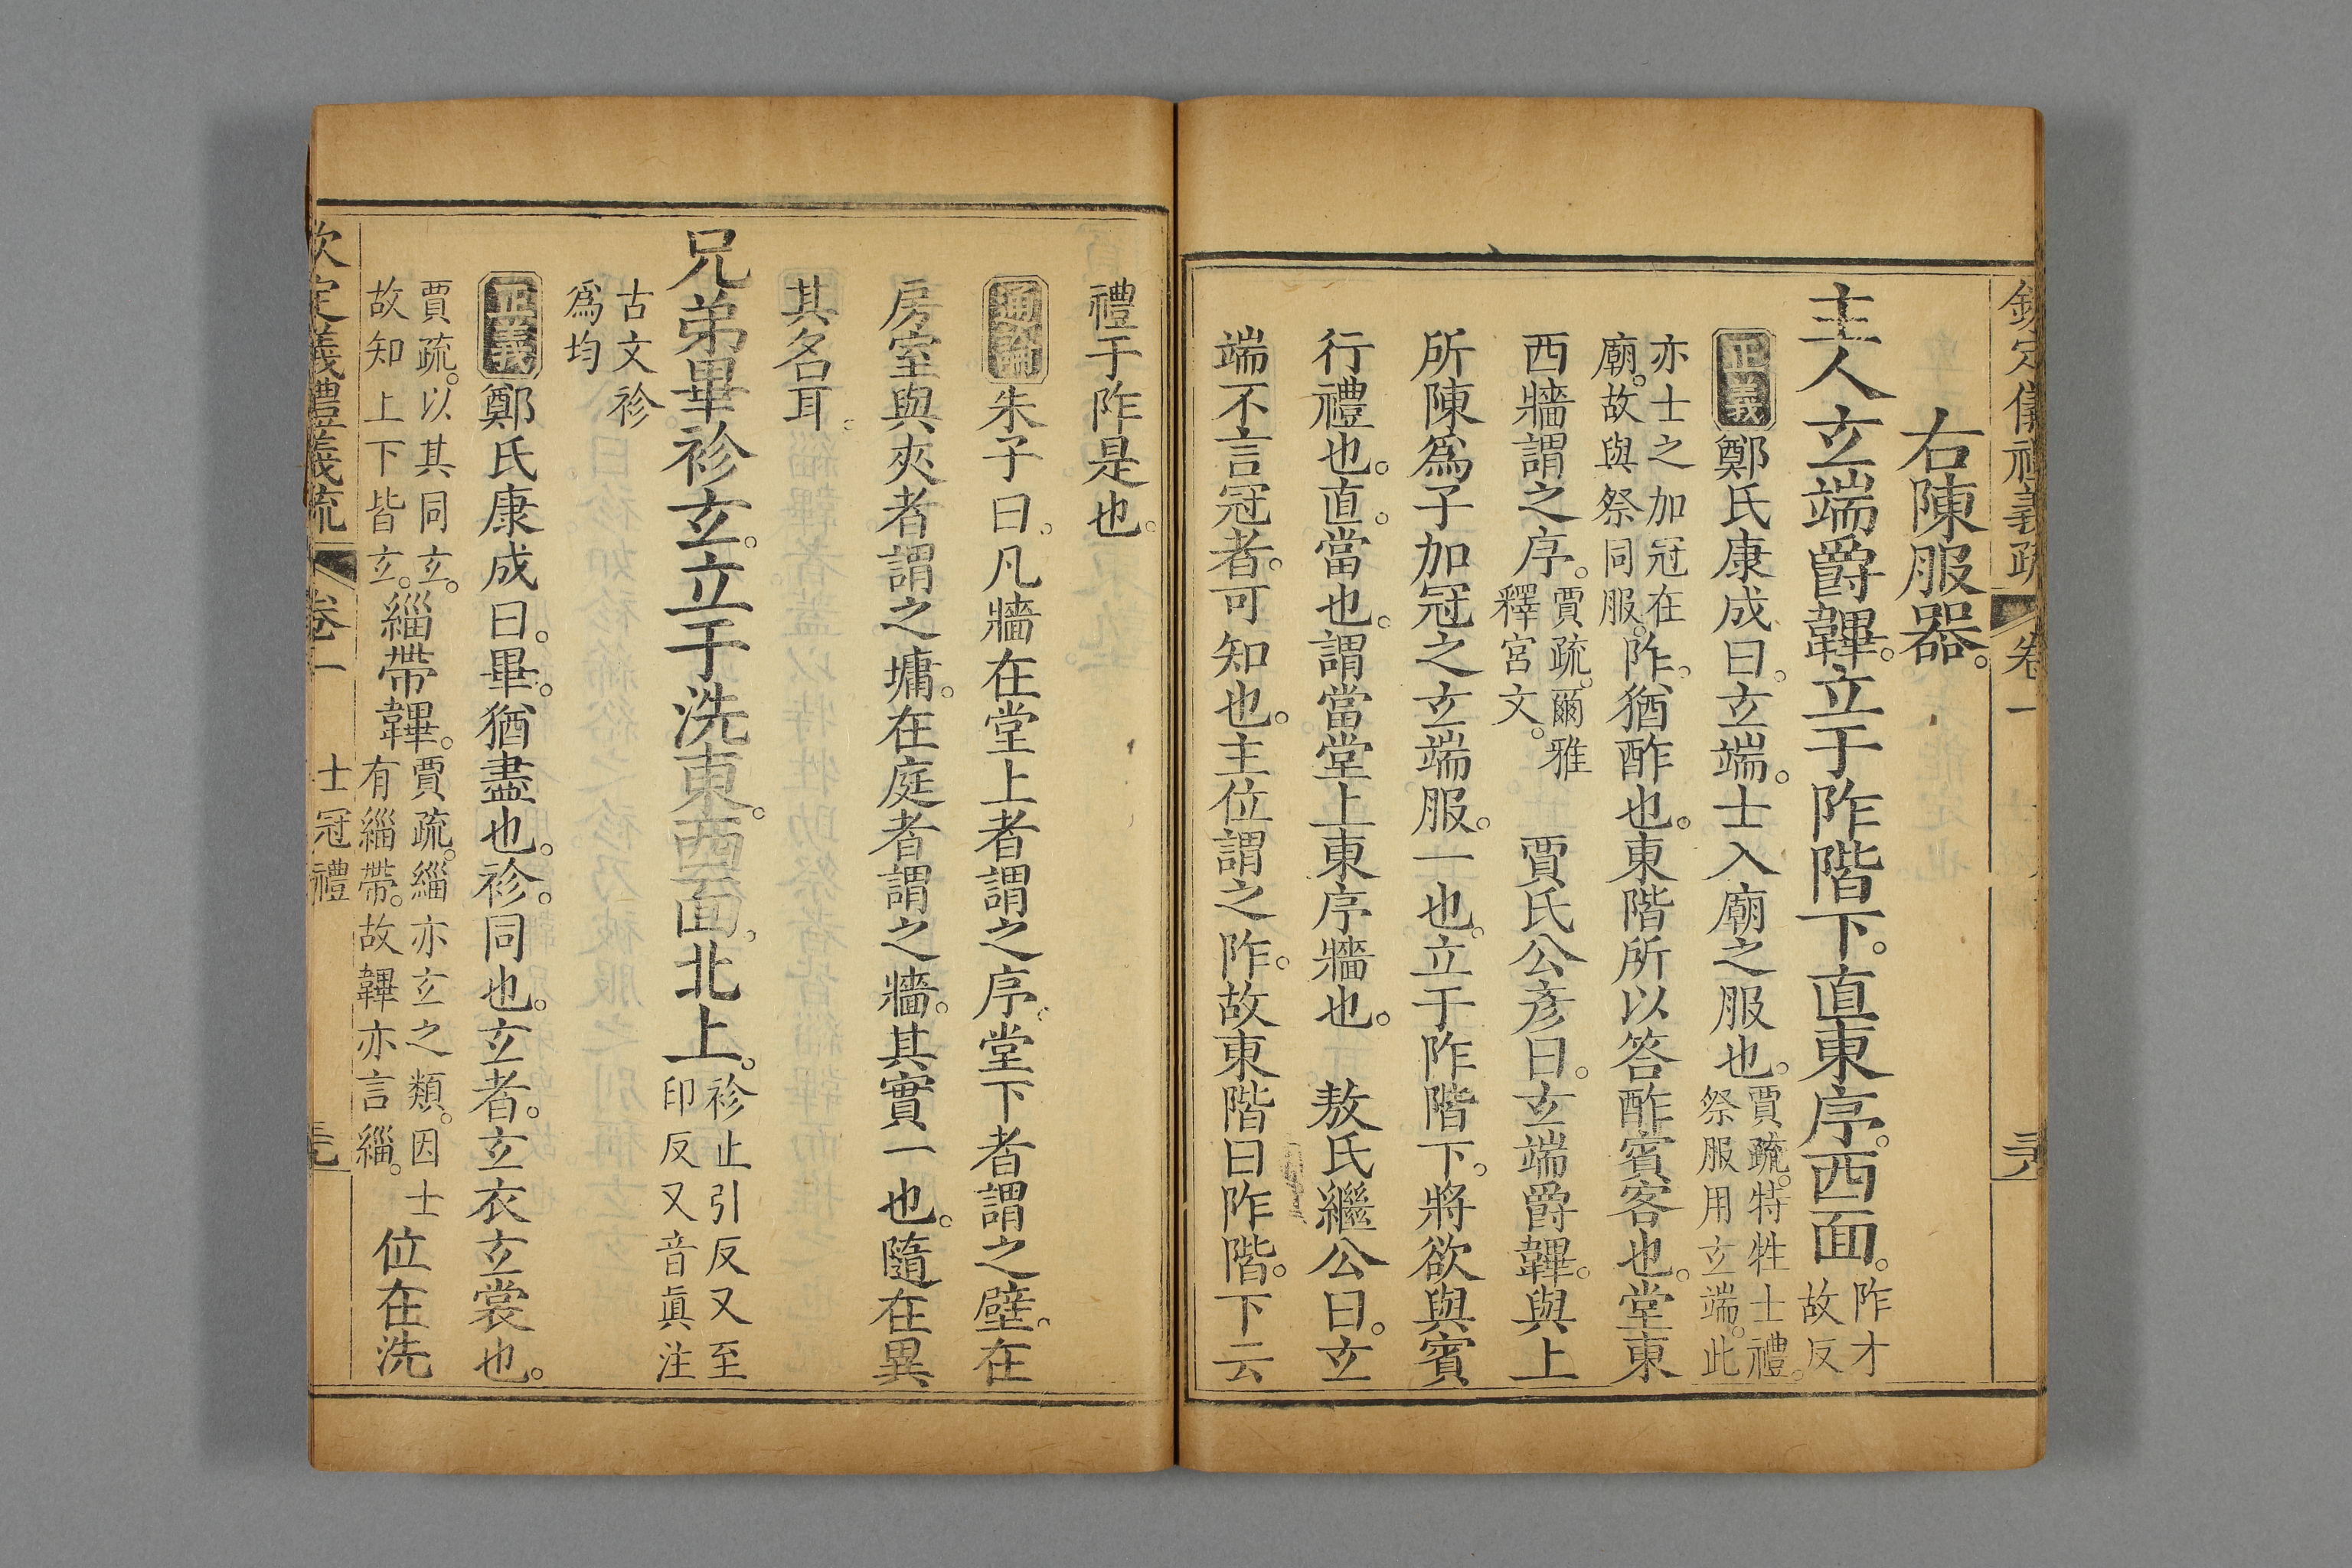 欽定儀禮義疏 卷一 三六
右陳服器。
主人玄端爵韠。立于阼階下。直東序。西面。阼才故反
正義鄭氏康成曰。玄端。士入廟之服也。賈疏。特牲士禮。祭服用玄端。此
亦士之加冠在廟。故與祭同服。阼。猶酢也。東階所以答酢賓客也。堂東
西牆謂之序。賈疏。爾雅釋宮文。 賈氏公彥曰。玄端爵韠。與上
所陳爲子加冠之玄端服。一也。立于阼階下。將欲與賓
行禮也。直。當也。謂當堂上東序牆也。 敖氏繼公曰。玄
端不言冠者。可知也。主位謂之阼。故東階曰阼階。下云
禮于阼是也。
通論朱子曰。凡牆在堂上者謂之序。堂下者謂之壁。在
房室與夾者謂之墉。在庭者謂之牆。其實一也。隨在異
其名耳。
兄弟畢袗玄。立于洗東。西面。北上。袗止引反又至印反又音眞注
古文袗爲均
正義鄭氏康成曰。畢。猶盡也。袗。同也。玄者。玄衣玄裳也。
賈疏。以其同玄。故知上下皆玄。緇帶韠。賈疏。緇亦玄之類。因士有緇帶。故韠亦言緇。位在洗
欽定義禮義疏 卷一 士冠禮